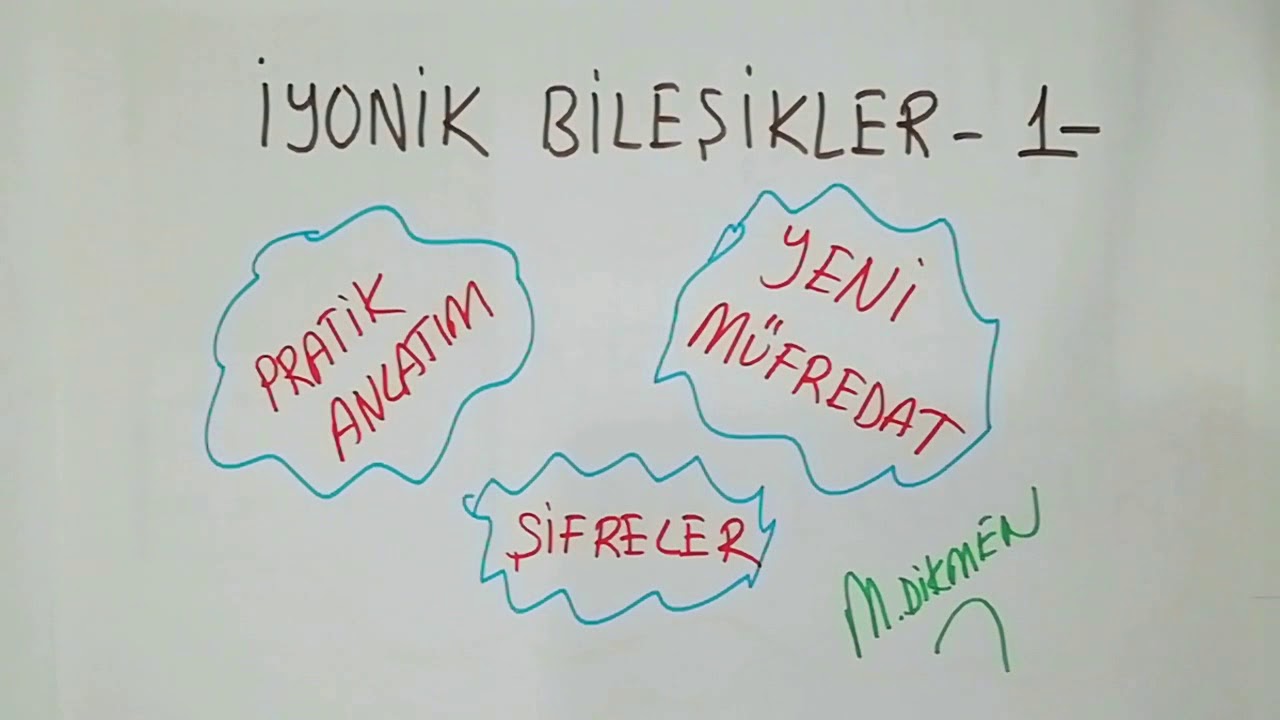 İYONİK BİLEŞİKLER - 1 -
PRATİK
ANLATIM
YENİ
MÜFREDAT
ŞİFRELER
M.DİKMEN